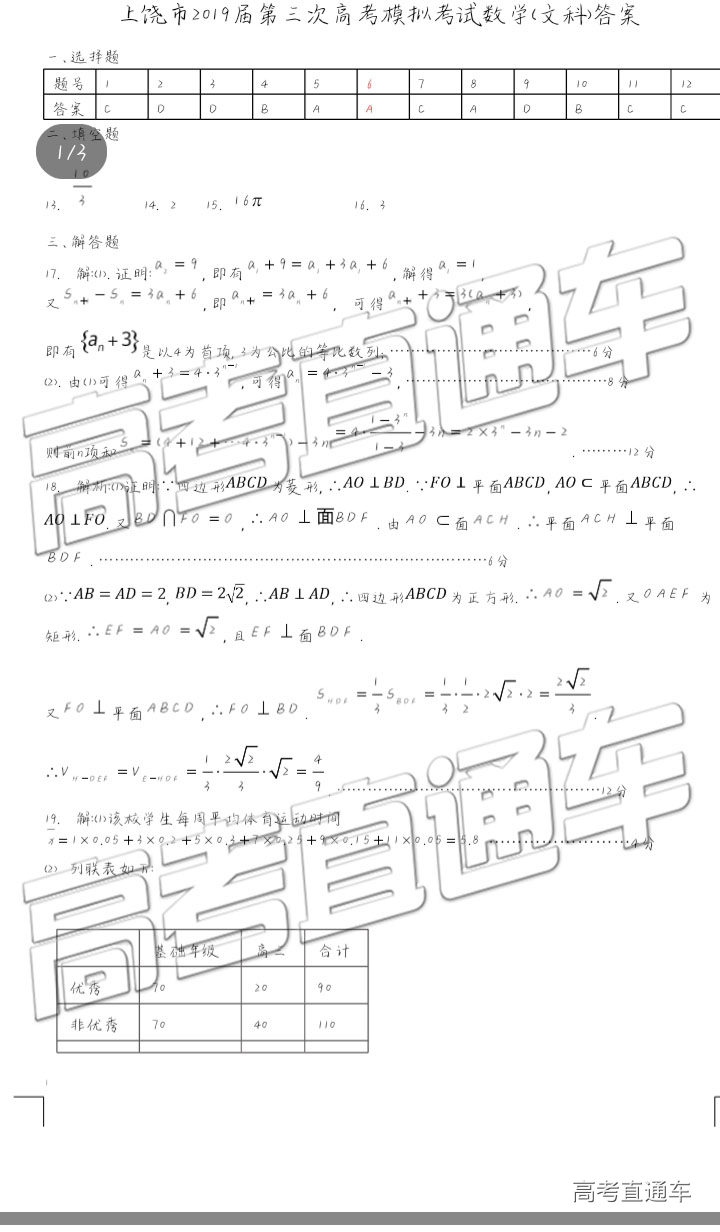 上饶市2019届第三次高考模拟考试数学(文科)答案
一、选择题
题号 1 2 3 4 5 6 7 8 9 10 11 12
答案 C D D B A A C A D B C C
二、填空题
1/3
13. 10/3 14. 2 15. 16π 16. 3
三、解答题
17. 解:(1). 证明: a₂ = 9, 即有 a₁ + 9 = a₁ + 3a₁ + 6, 解得 a₁ = 1,
又 Sₙ₊ - Sₙ = 3aₙ + 6, 即 aₙ₊ = 3aₙ + 6, 可得 aₙ₊ + 3 = 3(aₙ + 3),
即有 {aₙ + 3} 是以4为首项, 3为公比的等比数列; ……6分
(2). 由(1)可得 aₙ + 3 = 4·3ⁿ⁻¹, 可得 aₙ = 4·3ⁿ⁻ - 3, ……8分
则前n项和 Sₙ = (4+12+…4·3ⁿ⁻) - 3n = 4·(1-3ⁿ)/(1-3) - 3n = 2×3ⁿ - 3n - 2. ………12分
18. 解析:(1)证明:∵四边形ABCD为菱形, ∴AO⊥BD. ∵FO⊥平面ABCD, AO⊂平面ABCD, ∴
AO⊥FO. 又BD∩FO=O, ∴AO⊥面BDF. 由AO⊂面ACH. ∴平面ACH⊥平面
BDF. ……6分
(2)∵AB=AD=2, BD=2√2, ∴AB⊥AD, ∴四边形ABCD为正方形. ∴AO=√2. 又OAEF为
矩形. ∴EF=AO=√2, 且EF⊥面BDF.
又FO⊥平面ABCD, ∴FO⊥BD. S HDF = 1/3 S BDF = 1/3·1/2·2√2·2 = 2√2/3.
∴V H-DEF = V E-HDF = 1/3·2√2/3·√2 = 4/9. ……12分
19. 解:(1)该校学生每周平均体育运动时间
x̄=1×0.05+3×0.2+5×0.3+7×0.25+9×0.15+11×0.05=5.8 ……4分
(2) 列联表如下:
基础年级 高三 合计
优秀 70 20 90
非优秀 70 40 110
1
高考直通车
高考直通车
高考直通车